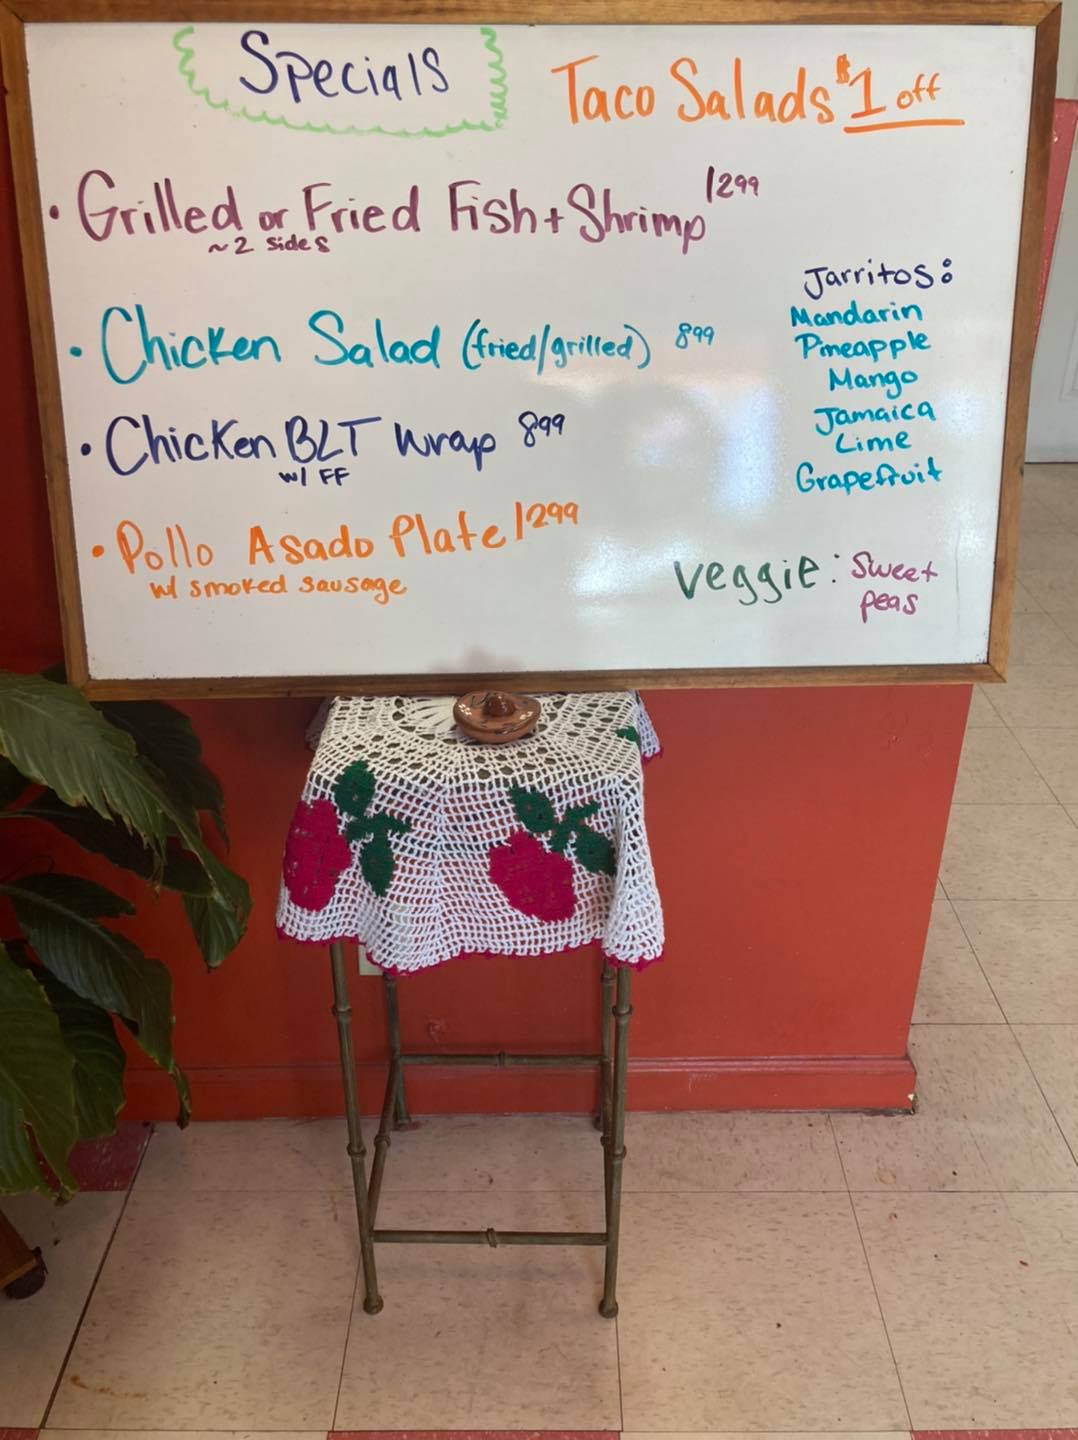 Specials
Taco Salads $1 off
• Grilled or Fried Fish + Shrimp 1299
~2 sides
• Chicken Salad (fried/grilled) 899
• Chicken BLT wrap 899
w/ FF
• Pollo Asado Plate 1299
w/ smoked sausage
Jarritos:
Mandarin
Pineapple
Mango
Jamaica
Lime
Grapefruit
veggie: sweet
peas